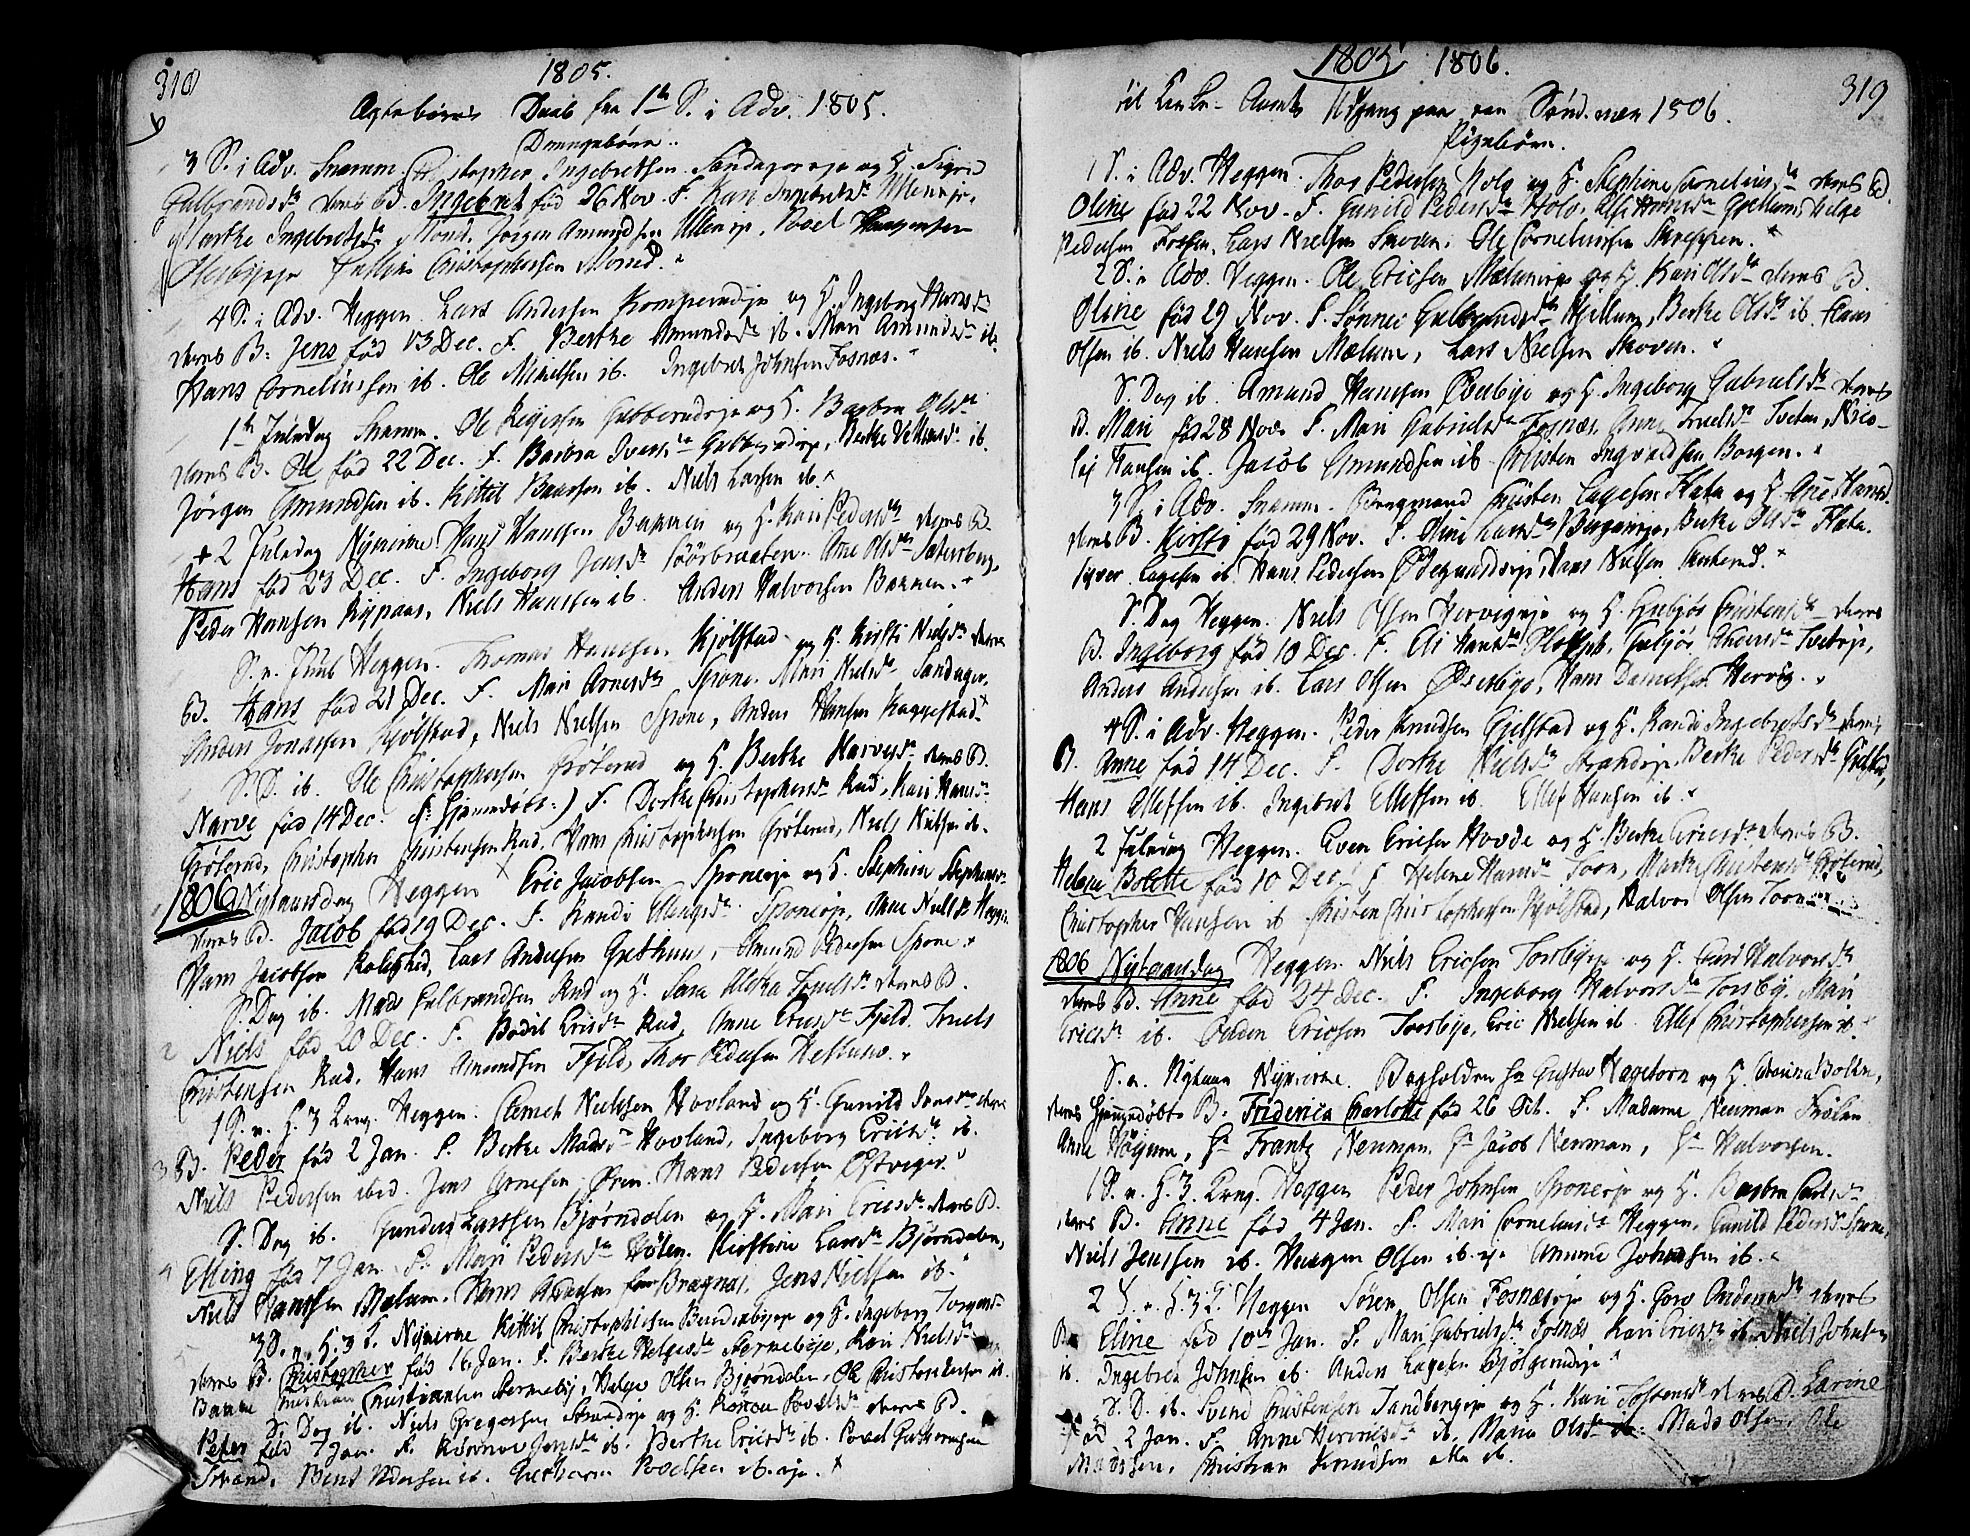 318
1805.
Ægtebørns Daab fra 1te S. i Adv. 1805.
Drengebørn
3 S. i Adv. Snarum Christopher Ingebretsen Sandagereje og H. Sigrid
Gulbrandsdr deres B. Ingebret fød 26 Nov. F. Kari Ingebretsdr Ulleneje,
Marthe Ingebretsdr Moend, Jørgen Amundsen Ulleneje, Povel
Christophersen Moend.
4 S. i Adv. Heggen Lars Andersen Komperudeje og H. Ingeborg Hansdr
deres B: Jens fød 13 Dec. F. Berthe Amundsdr ib. Mari Amundsdr ib.
Hans Corneliussen ib. Ole Mikelsen ib. Ingebret Johnsen Fosnæs.
1te Juledag Snarum. Ole Gubberudeje og H. Barbra Olsdr
deres B. Ole fød 22 Dec. F. Barbra Iversdr Gubberudeje, Berthe ib.
Jørgen Amundsen ib. Kittil ib. Niels Larsen ib.
2 Juledag Nykirke Hans Hanssen Bakken og H. Kari Pedersdr deres B.
Hans fød 23 Dec. F. Ingeborg Jensdr Sørbraaten. Anne Olsdr Sætersberg,
Peder Hansen Rypaas, Niels Hanssen ib. Anders Halvorsen Bakken.
S. n. Juul Heggen. Thomas Hanssen Kjølstad og H. Kirsti Nielsdr deres
B. Hans fød 21 Dec. F. Mari Arnesdr Spone. Mari Nielsdr Sandager,
Anders Jonassen Kjølstad, Niels Nielsen Spone, Anders Hansen Kaggestad
S. D. ib. Ole Christophersen Grøterud og H. Berthe Narvesdr deres B.
Narve fød 14 Dec. (: Hjemmedøbt :) F. Dorthe Christophersdr Rud, Kari Hansdr
Grøterud, Christopher Christensen Rud, Hans Christophersen Grøterud, Niels Nielsen ib.
1806 Nytaarsdag Heggen Eric Jacobsen Sponeeje og H. Stephine Stephensdr
deres B. Jacob fød 19 Dec. F. Randi Sponeeje, Anne Nielsdr Heggen
Hans Jacobsen Lars Andersen Grethuus, Amund Pedersen Spone
S. Dag ib. Mads Gulbrandsen Rud og H. Sara Truelsdr deres B.
2 Niels fød 20 Dec. F. Bodil Ericsdr Rud, Anne Ericsdr Fjeld. Truels
Christensen Rud, Hans Amundsen Fjeld, Thor Pedersen Hellum.
1 S. n. H. 3 Kong. Heggen. Clemet Nielssen Hovland og H. Gunild Jensdr deres
3 B. Peder fød 2 Jan. F. Berthe Madsdr Hovland, Ingeborg Ericsdr ib.
Niels Pedersen ibid. Jens Arnesen Øren. Hans Pedersen Østveger.
S. Dag ib. Gunder Larssen Bjørndalen og H. Mari Ericsdr deres B.
4 Elling fød 7 Jan. F. Mari Pedersdr Hølen. Kirstine Larsdr Bjørndalen,
Niels Hanssen Mælum. Hans Andersen Bragnæs. Jens Nielsen ib.
3 S. n. H. 3 K. Nykirke Kittil Christophersen og H. Ingeborg Torgersdr
deres B. Christopher fød 16 Jan. F. Berthe Helgesdr Stærnebye, Kari Nielsdr
Christian Christiansen Stærnebÿ, Helge Olsen Bjørndalen, Ole Christophersen ib.
S. Dag ib. Niels Gregersen Strandeje og H. Rønou Povelsdr deres B.
Peter fød 7 Jan. F. Jensdr ib. Berthe Ericsdr ib. Povel
Strand, Bent Pedersen ib. Povelsen ib. eje.
1805 1806.
319
til Kirke-Aarets Udgang paa Sønd. 1806.
Pigebørn.
1 S. i Adv. Heggen. Thor Pedersen Hole og H. Stephine Corneliusdr deres B.
Oline fød 22 Nov. F. Gunild Pedersdr Hole. Gjellum, Helge
Pedersen Fossen, Lars Nielsen Skoven, Ole Corneliussen
2 S. i Adv. Heggen. Ole Ericsen Mælumeje og H. Kari Olsdr deres B.
Oline fød 29 Nov. F. Sønnei Gulbrandsdr Hjellum, Berthe Olsdr ib. Hans
Olsen ib. Niels Hansen Mælum, Lars Nielsen Skoven.
S. Dag ib. Amund Hanssen Øvebÿe og H. Ingeborg Gabrielsdr deres
B. Mari fød 28 Nov. F. Mari Gabrielsdr Fosnæs, Anne Truelsdr Tveten, Nico-
laj Hansen ib. Jacob Amundsen ib. Christen Ingvaldsen Borgen.
3 S. i Adv. Snarum. Bergmand Christen Lagesen Flata og H. Anne Hansd.
deres B. Kirsti fød 29 Nov. F. Oline Larsdr Bergeneje, Berthe Olsdr Flata.
Siver Lagesen ib. Hans Pedersen Ødegaardseje, Hans Nielsen Ankerud.
S. Dag Heggen. Niels Olsen Hervigeje og H. Gubjør Christensdr deres
B. Ingeborg fød 10 Dec. F. Eli Hansdr Gubjør Andersdr Tveteje,
Anders Andersen ib. Lars Olsen Østerbye, Hans Danielsen Hervig.
4 S. i Adv. Heggen. Peder Knudsen Gjelstad og H. Randi Ingebretsdr deres
B. Anne fød 14 Dec. F. Dorthe Nielsdr Strandeje, Berthe Pedersdr Gjelstad,
Hans Ellefsen ib. Ingebret Ellefsen ib. Ellef Hansen ib.
2 Juledag Heggen. Even Ericsen Hovde og H. Berthe Ericsdr deres B.
Helene Bolette fød 10 Dec. F. Helene Hansdr Toen, Marthe Christensdr Grøterud,
Christopher Hanssen ib. Christen Christophersen Kjølstad, Halvor Olsen Toen
1806 Nytaarsdag Heggen. Niels Ericsen Torsbyeje og H. Halvorsdr
deres B. Anne fød 24 Dec. F. Ingeborg Halvorsdr Torsby. Mari
Ericsdr ib. Ericsen Torsbyeje, Eric Nielsen ib. Ellef Christophersen ib.
S. n. Nytaar Nykirke. Bogholder Hr Gustav Hagetorn og H. Bolken,
deres hjemmedøbte B. Friderica Charlotte fød 26 Oct. F. Madame Neuman Frøken
Anne Hr Frantz Neuman Hr Jacob Neuman, Hr Halvorsen.
1 S. n. H. 3. Kong. Heggen Peder Johnsen Sponeeje og H. Barbra Carlsdr
deres B. Anne fød 4 Jan. F. Mari Corneliusdr Heggen, Gunild Pedersdr Spone,
Niels Jenssen ib. Haagen Olsen ib. eje Amund Johnsen ib.
2 S. n. H. 3 K. Heggen Søren Olsen Fosnæseje og H. Goro Andersdr deres
B. Eline fød 10de Jan. F. Mari Gabrielsdr Fosnæs Kari Ericsdr ib. Niels Johnsen
ib. Ingebret Johnsen ib. Anders Lagesen Bjølgerudeje
S. D. ib. Svend Christensen Sandbergeje og H. Kari deres B. Karine
fød 2 Jan. F. Anne Henricsdr ib. Maria Olsdr ib. Mads Olsen, Ole
Madssen, Christian Knudsen alle ib.